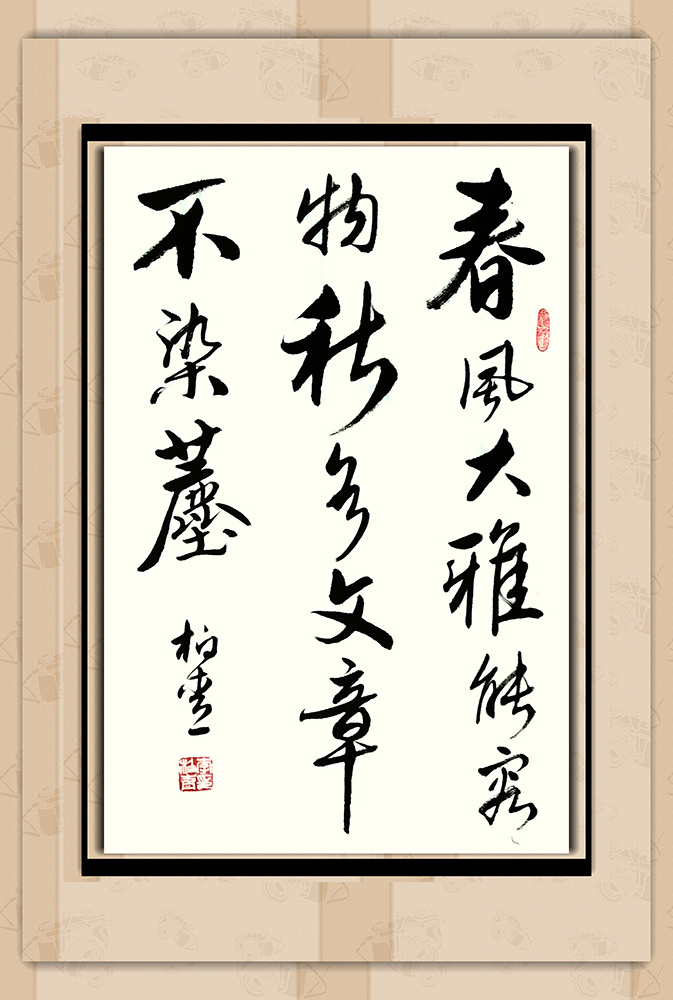 春風大雅能容
物秋水文章
不染塵
柏